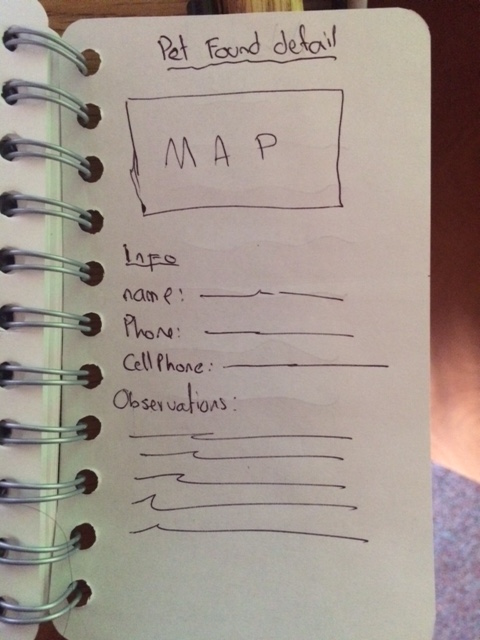 Pet Found detail
MAP
Info
name:
Phone:
CellPhone:
Observations: